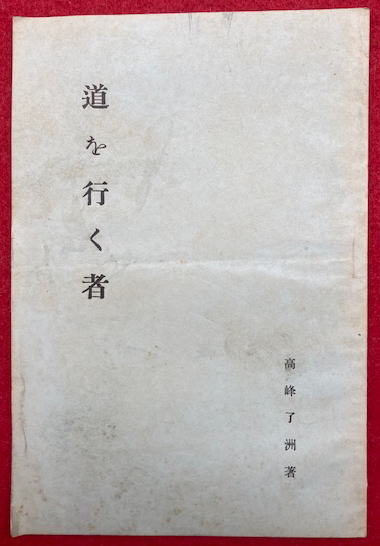 道を行く者
高峰了洲著